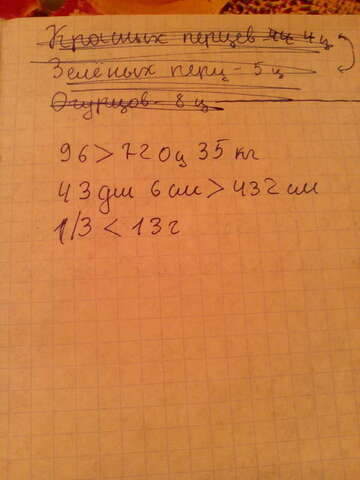 Красных перцев 4ц 4 ц
Зелёных перц - 5 ц
Огурцов - 8 ц
96 > 720ц 35 кг
43 дм 6 см > 432 см
1/3 < 13 г